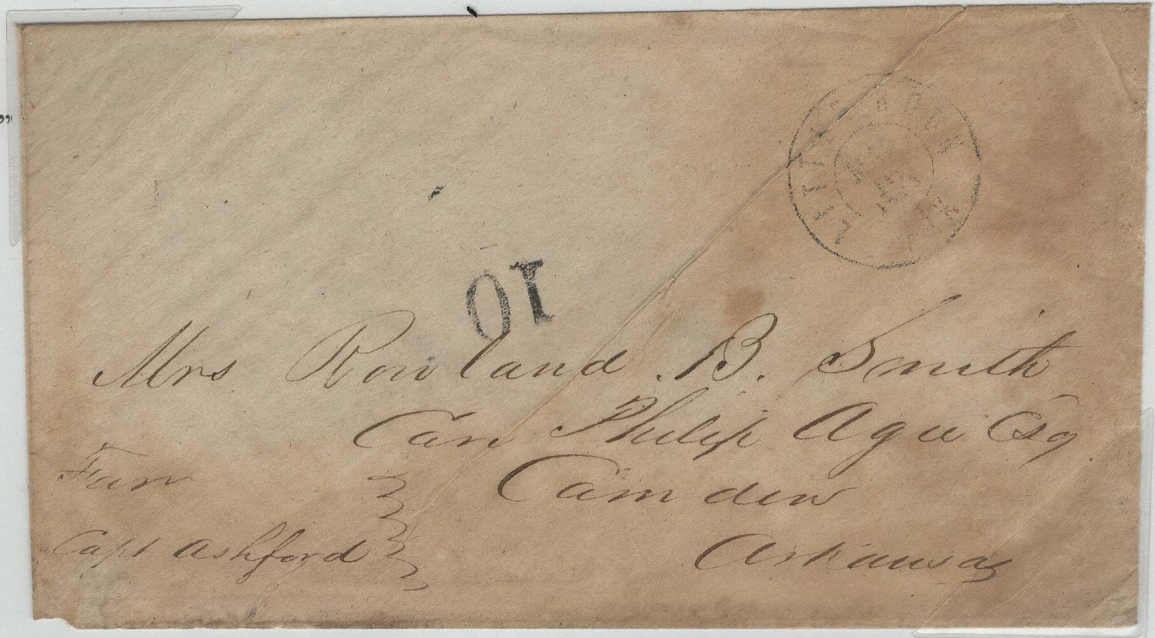 LITTLE ROCK
10
Mrs Rowland B. Smith
Care Philip Agee Esq
Camden
Arkansas
Capt Ashford